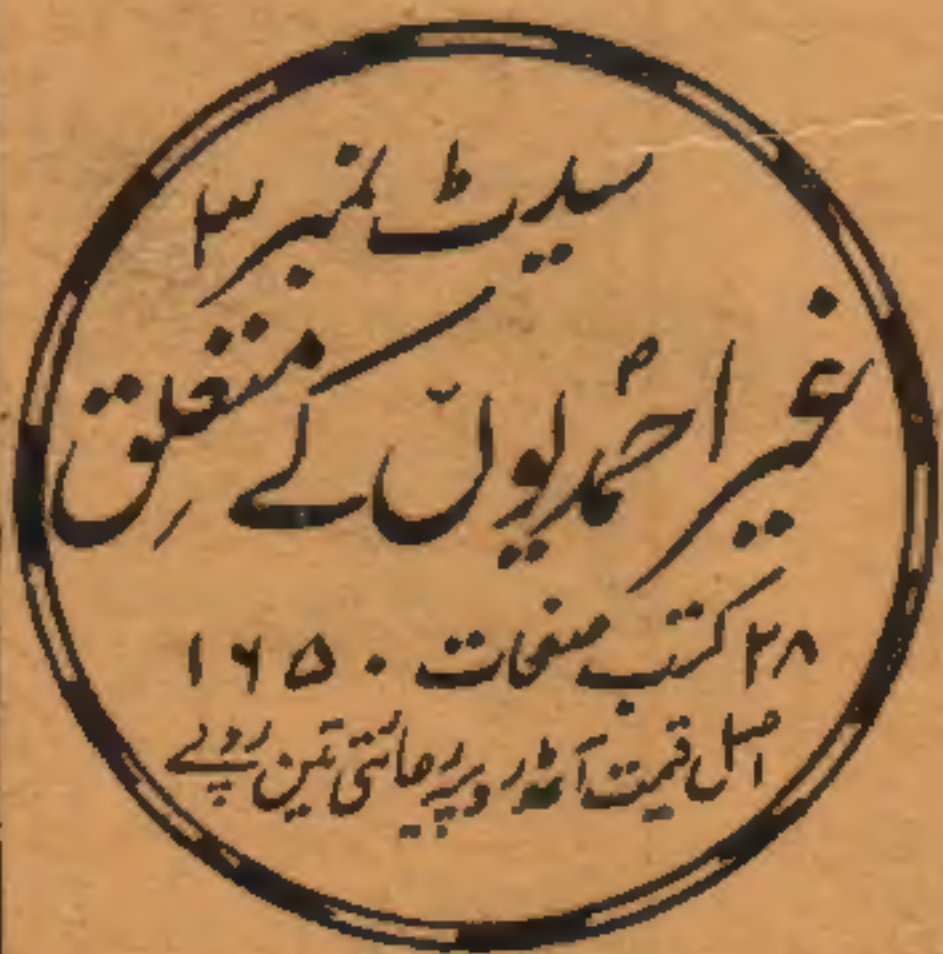 سیٹ نمبر ۳
غیر احمدیوں کے متعلق
۲۸ کتب صفحات ۱۶۵۰
اصل قیمت آٹھ روپیہ رعائتی تین روپے